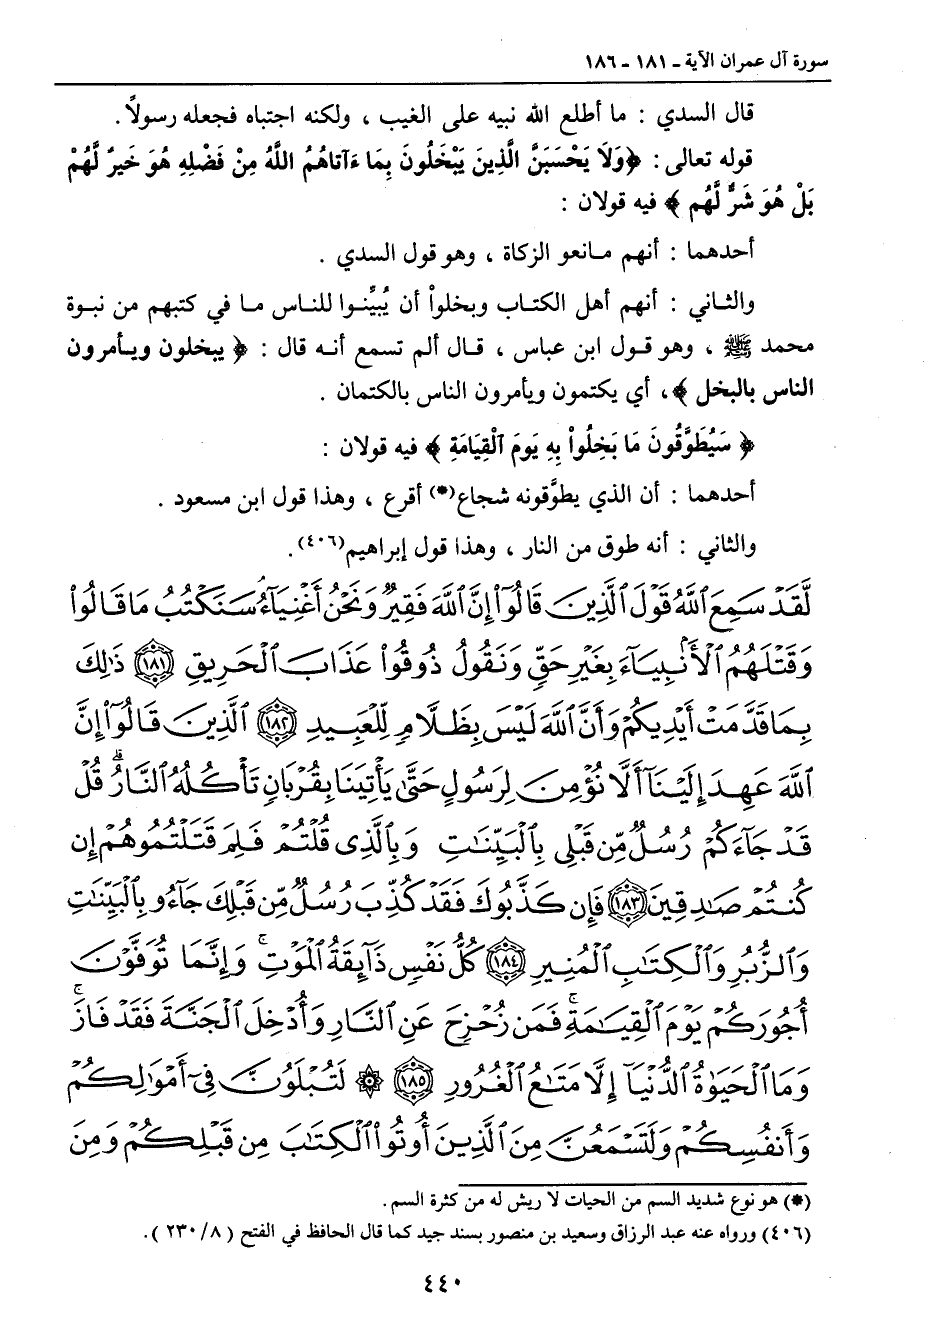 سورة آل عمران الآية ـ ١٨١ ـ ١٨٦
قال السدي : ما أطلع الله نبيه على الغيب ، ولكنه اجتباه فجعله رسولاً .
قوله تعالى : ﴿وَلَا يَحْسَبَنَّ الَّذِينَ يَبْخَلُونَ بِمَا ءَاتَاهُمُ اللَّهُ مِنْ فَضْلِهِ هُوَ خَيرٌ لَّهُمْ
بَلْ هُوَ شَرٌّ لَّهُم ﴾ فيه قولان :
أحدهما : أنهم مانعو الزكاة ، وهو قول السدي .
والثاني : أنهم أهل الكتاب وبخلواْ أن يُبيِّنوا للناس ما في كتبهم من نبوة
محمد ﷺ ، وهو قول ابن عباس ، قال ألم تسمع أنه قال : ﴿ يبخلون ويأمرون
الناس بالبخل ﴾، أي يكتمون ويأمرون الناس بالكتمان .
﴿ سَيُطَوَّقُونَ مَا بَخِلُواْ بِهِ يَومَ الْقِيَامَةِ ﴾ فيه قولان :
أحدهما : أن الذي يطوَّقونه شجاع(*) أقرع ، وهذا قول ابن مسعود .
والثاني : أنه طوق من النار ، وهذا قول إبراهيم(٤٠٦).
لَّقَدْ سَمِعَ ٱللَّهُ قَوْلَ ٱلَّذِينَ قَالُوٓاْ إِنَّ ٱللَّهَ فَقِيرٌ وَنَحْنُ أَغْنِيَآءُ سَنَكْتُبُ مَا قَالُواْ
وَقَتْلَهُمُ ٱلْأَنۢبِيَآءَ بِغَيْرِ حَقٍّ وَنَقُولُ ذُوقُواْ عَذَابَ ٱلْحَرِيقِ ١٨١ ذَٰلِكَ
بِمَا قَدَّمَتْ أَيْدِيكُمْ وَأَنَّ ٱللَّهَ لَيْسَ بِظَلَّامٍ لِّلْعَبِيدِ ١٨٢ ٱلَّذِينَ قَالُوٓاْ إِنَّ
ٱللَّهَ عَهِدَ إِلَيْنَآ أَلَّا نُؤْمِنَ لِرَسُولٍ حَتَّىٰ يَأْتِيَنَا بِقُرْبَانٍ تَأْكُلُهُ ٱلنَّارُ ۗ قُلْ
قَدْ جَآءَكُمْ رُسُلٌ مِّن قَبْلِى بِٱلْبَيِّنَٰتِ وَبِٱلَّذِى قُلْتُمْ فَلِمَ قَتَلْتُمُوهُمْ إِن
كُنتُمْ صَٰدِقِينَ ١٨٣ فَإِن كَذَّبُوكَ فَقَدْ كُذِّبَ رُسُلٌ مِّن قَبْلِكَ جَآءُو بِٱلْبَيِّنَٰتِ
وَٱلزُّبُرِ وَٱلْكِتَٰبِ ٱلْمُنِيرِ ١٨٤ كُلُّ نَفْسٍ ذَآئِقَةُ ٱلْمَوْتِ ۗ وَإِنَّمَا تُوَفَّوْنَ
أُجُورَكُمْ يَوْمَ ٱلْقِيَٰمَةِ ۖ فَمَن زُحْزِحَ عَنِ ٱلنَّارِ وَأُدْخِلَ ٱلْجَنَّةَ فَقَدْ فَازَ ۗ
وَمَا ٱلْحَيَوٰةُ ٱلدُّنْيَآ إِلَّا مَتَٰعُ ٱلْغُرُورِ ١٨٥ ۞ لَتُبْلَوُنَّ فِىٓ أَمْوَٰلِكُمْ
وَأَنفُسِكُمْ وَلَتَسْمَعُنَّ مِنَ ٱلَّذِينَ أُوتُواْ ٱلْكِتَٰبَ مِن قَبْلِكُمْ وَمِنَ
(*) هو نوع شديد السم من الحيات لا ريش له من كثرة السم .
(٤٠٦) ورواه عنه عبد الرزاق وسعيد بن منصور بسند جيد كما قال الحافظ في الفتح ( ٨/ ٢٣٠ ).
٤٤٠